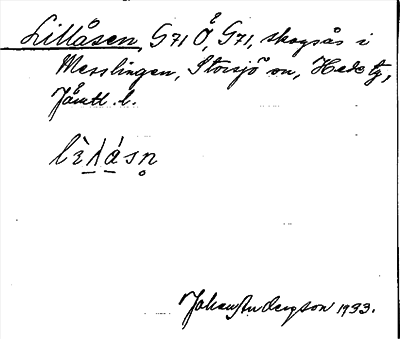 Lillåsen, G71 Å, G71, skogsås i
Messlingen, Storsjö sn, Hede tg,
Jämtl. l.
lèλásn̥
Johan Anderzon 1933.